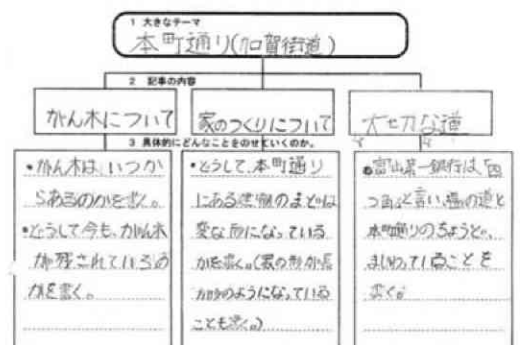 1 大きなテーマ
本町通り(加賀街道)
2 記事の内容
がん木について
家のつくりについて
大切な道
3 具体的にどんなことをのせていくのか。
・がん木は、いつか
らあるのかを書く。
・どうして今も、がん木
が残されているの
かを書く。
・どうして、本町通り
にある建物のまどは
変な形になっている
かを書く。(家の形が長
ことも書く。)
・富山第一銀行は、「四
つ角」と言い、塩の道と
本町通りのちょうど、
まじわっていることを
書く。